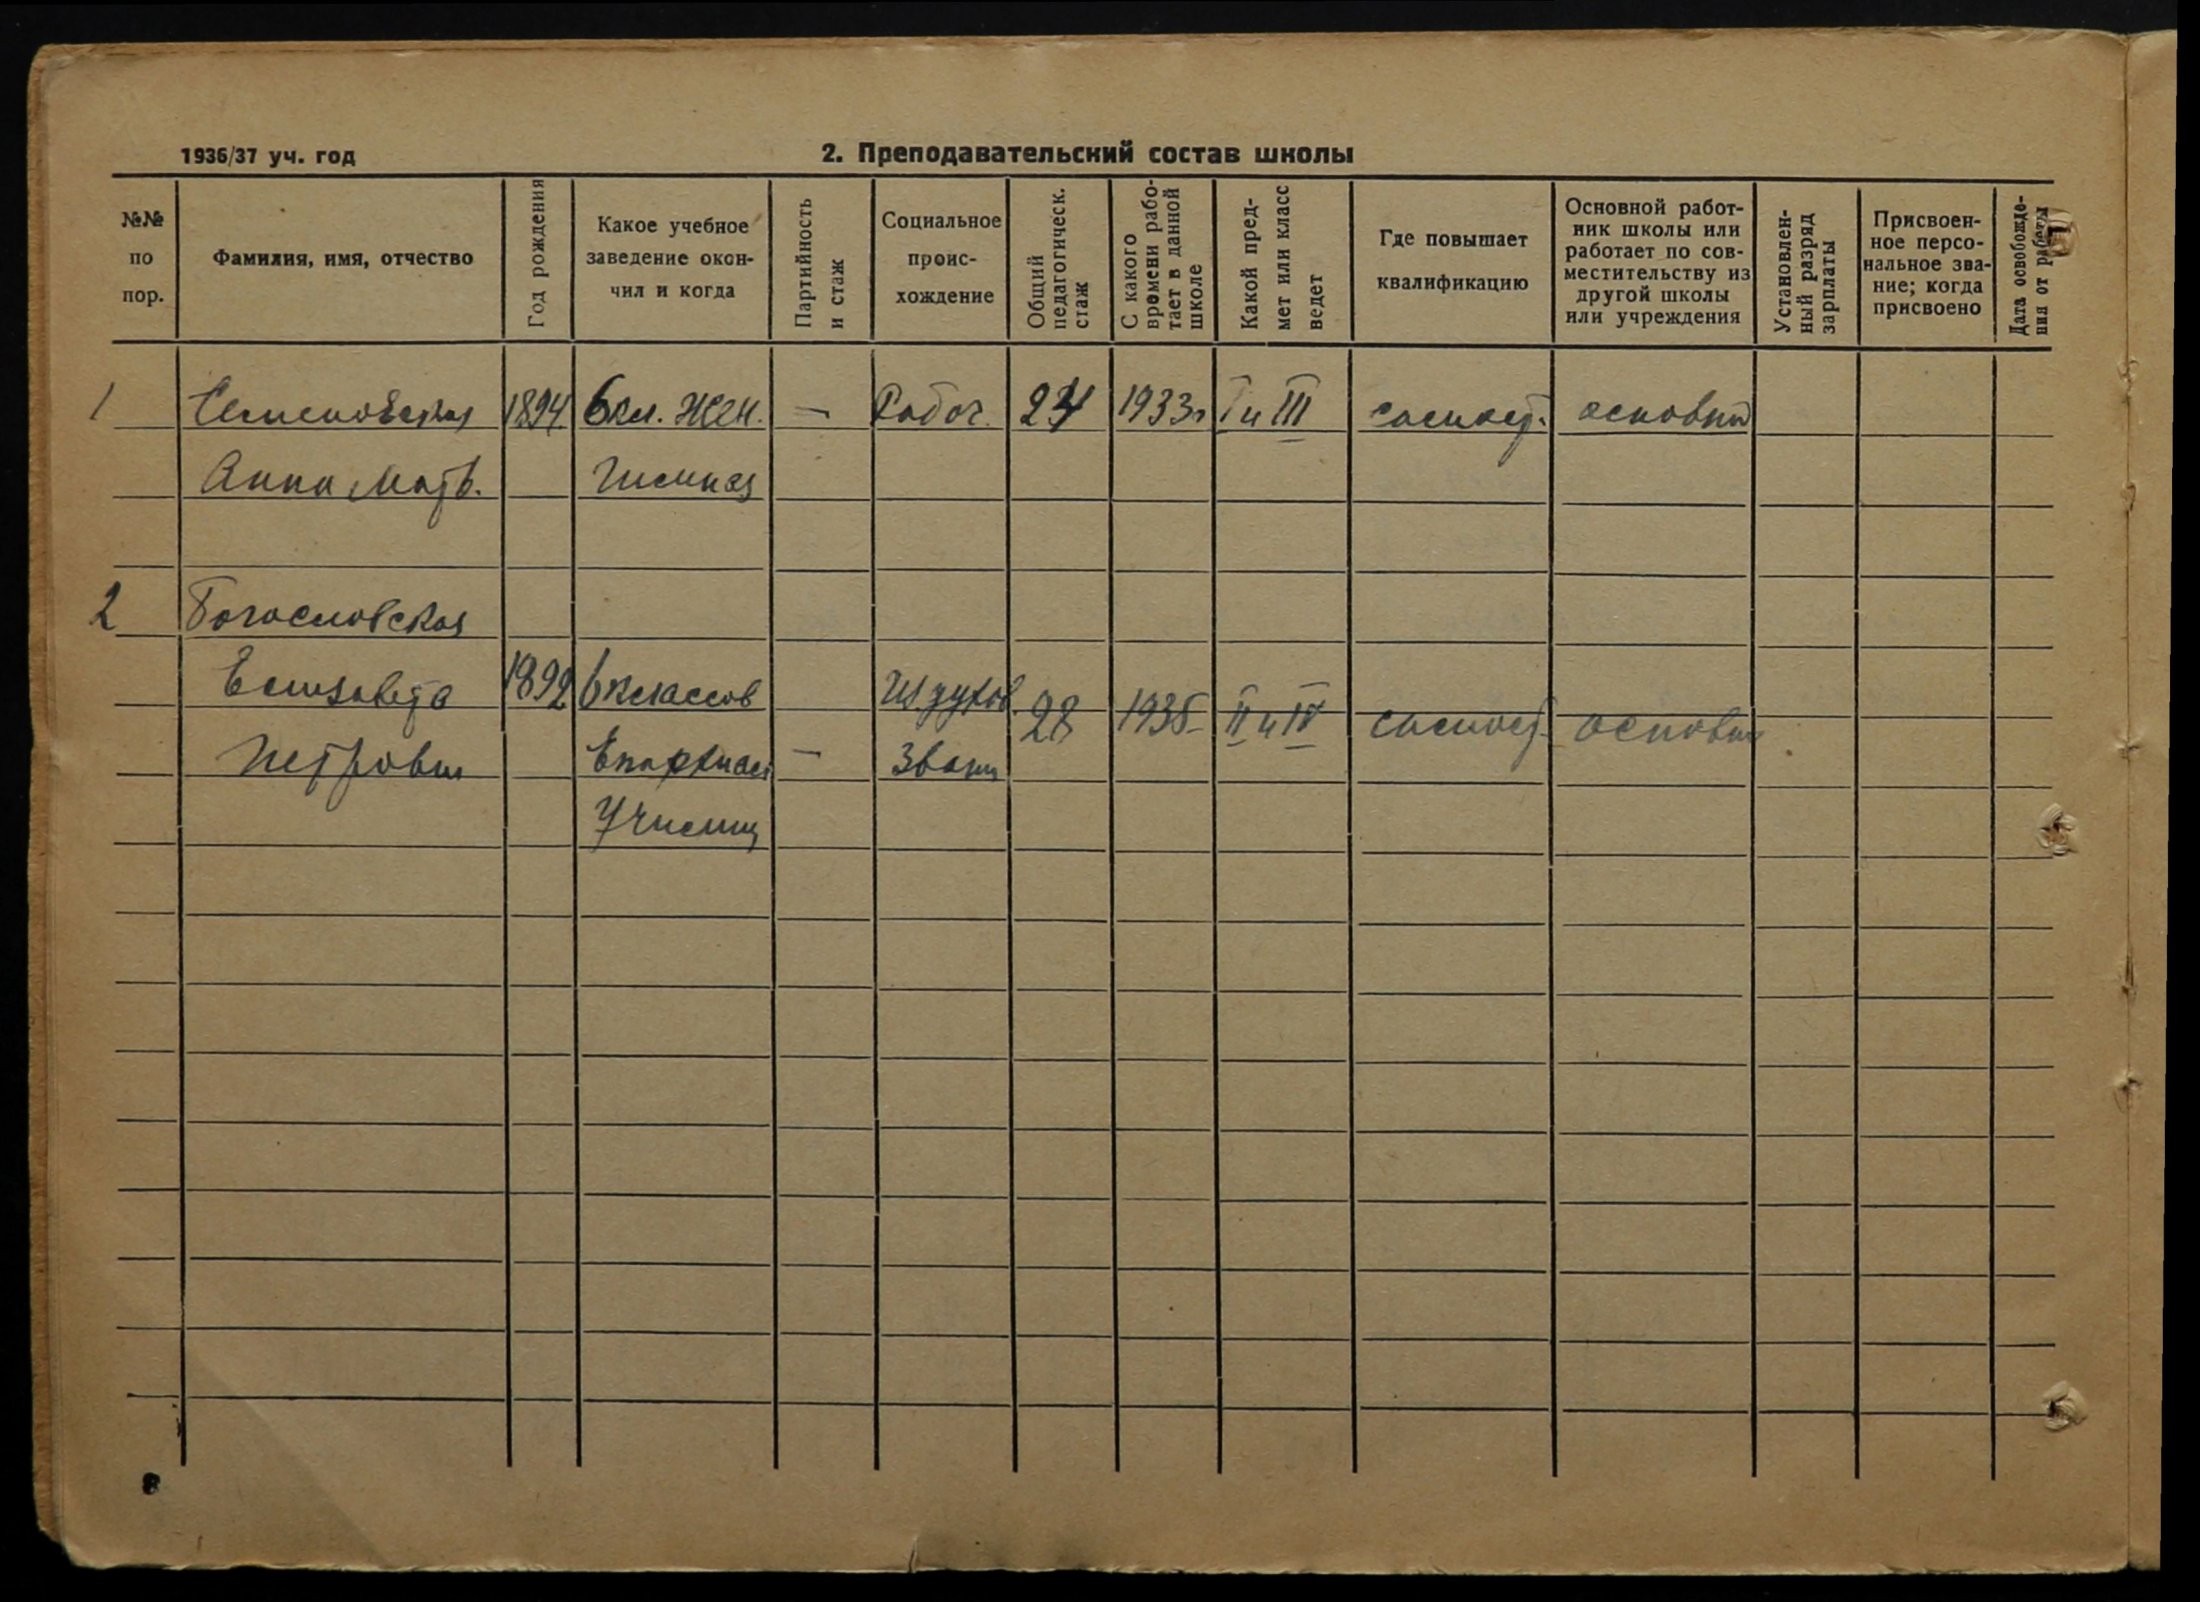 1936/37 уч. год
2. Преподавательский состав школы
№№ по пор.
Фамилия, имя, отчество
Год рождения
Какое учебное заведение окон-
чил и когда
Партийность и стаж
Социальное
проис-
хождение
Общий
педагогическ.
стаж
С какого
времени рабо-
тает в данной
школе
Какой пред-
мет или класс
ведет
Где повышает
квалификацию
Основной работ-
ник школы или
работает по сов-
местительству из
другой школы
или учреждения
Установлен-
ный разряд
зарплаты
Присвоен-
ное персо-
нальное зва-
ние; когда
присвоено
Дата освобожде-
ния от работы
1 Семеновская 1894 6 кл. Жен. — Рабоч. 24 1933г I и III основн
Анна Матв. Гимназ
2 Богословская
Елизавета 1892 6 классов 28 1935 II и IV основн
Петровн Епархиал — Звани
Училищ
8